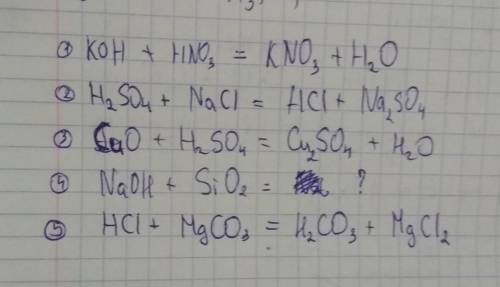 ① KOH + HNO₃ = KNO₃ + H₂O
② H₂SO₄ + NaCl = HCl + Na₂SO₄
③ + H₂SO₄ = Cu₂SO₄ + H₂O
④ NaOH + SiO₂ = ?
⑤ HCl + MgCO₃ = H₂CO₃ + MgCl₂